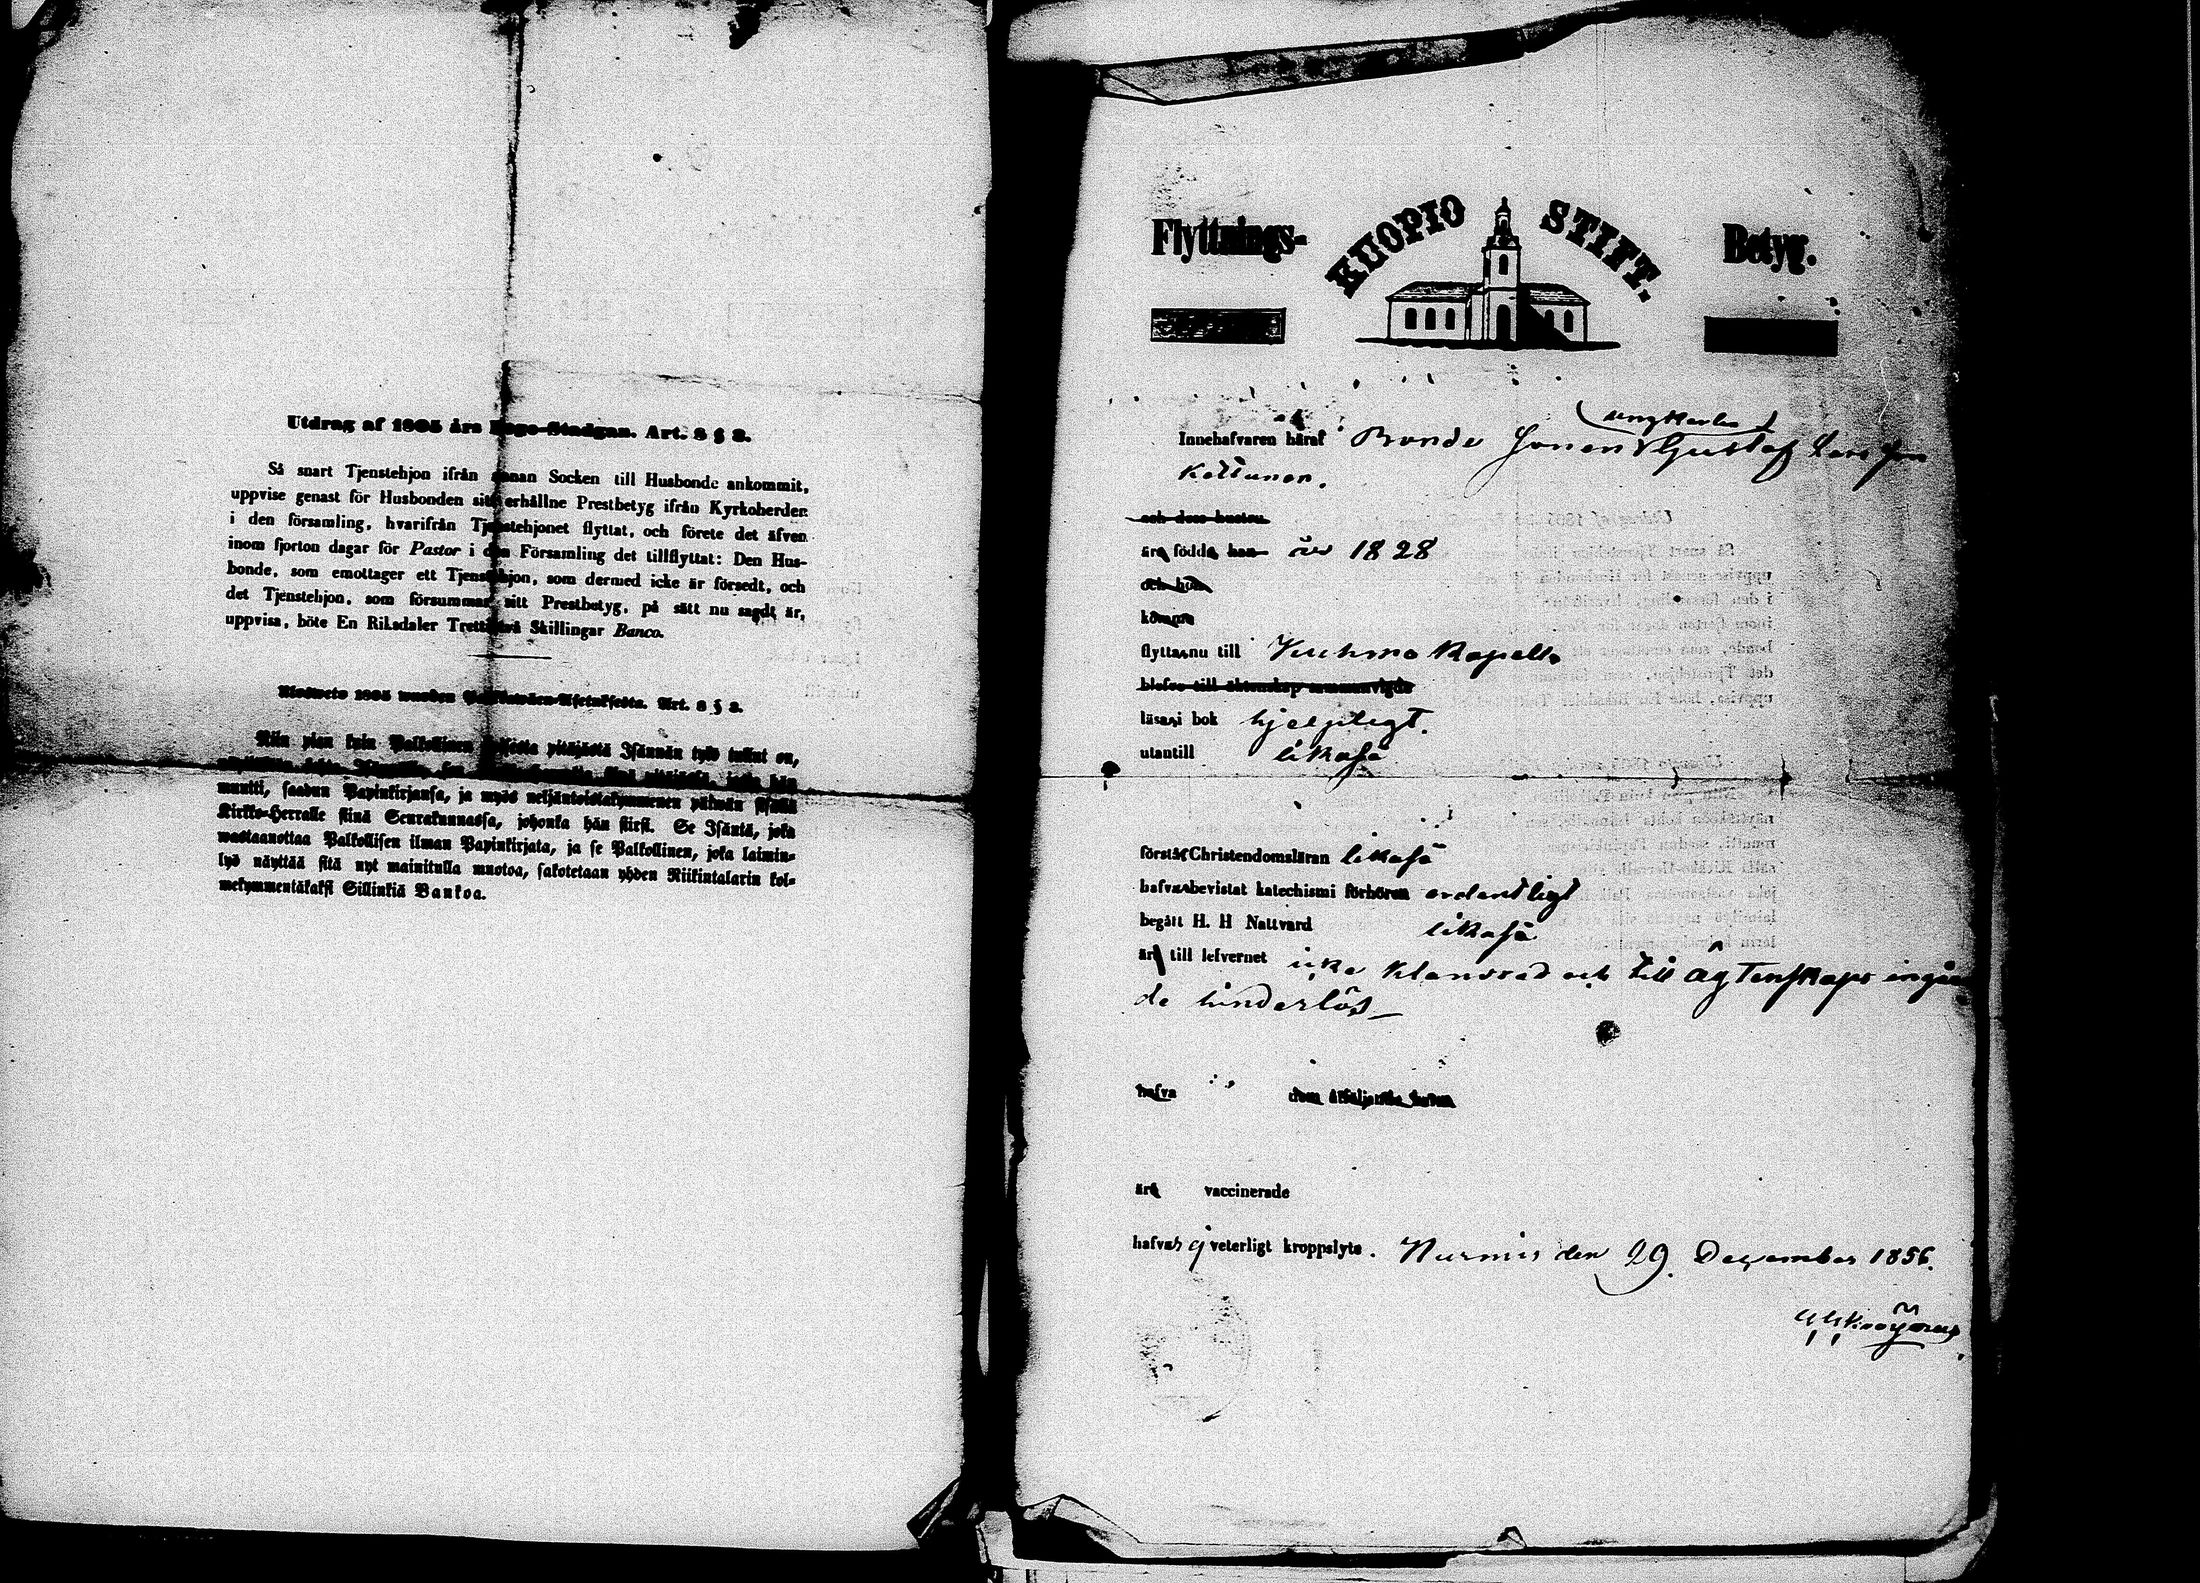 Utdrag af 1805 års Lego-Stadgan. Art. 8 § 2.
Så snart Tjenstehjon ifrån annan Socken till Husbonde ankommit,
uppvise genast för Husbonden sitt erhållne Prestbetyg ifrån Kyrkoherden
i den församling, hvarifrån Tjenstehjonet flyttat, och förete det äfven
inom fjorton dagar för Pastor i den Församling det tillflyttat: Den Hus-
bonde, som emottager ett Tjenstehjon, som dermed icke är försedt, och
det Tjenstehjon, som försummar sitt Prestbetyg, på sätt nu sagdt är,
uppvisa, böte En Riksdaler Trettiotvå Skillingar Banco.
1805 wuoden Art. 8 § 2.
Niin pian kuin Palkollinen toisesta pitäjästä Isännän työ tullut on,
muutti, saadun Papinkirjansa, ja myös neljäntoistakymmenen päiwän sisällä
Kirkko-Herralle siinä Seurakunnassa, johonka hän siirsi. Se Isäntä, joka
wastaanottaa Palkollisen ilman Papinkirjata, ja se Palkollinen, joka laimin-
lyö näyttää sitä nyt mainitulla muotoa, sakotetaan yhden Riikintalarin kol-
mekymmentäkaksi Sillinkiä Bankoa.
Flyttnings- KUOPIO STIFT. Betyg.
ungkarlen
Innehafvaren häraf Bonde Sonen Gustaf Lars Son
Kettunen.
och dess hustru
äro födde han år 1828
och hon
komma
flytta nu till Kuhmo Kapell
blefvo till äktenskap sammanvigde
läsa i bok hjelpligt.
utantill likaså
förstå Christendomsläran likaså
hafva bevistat katechismi förhören ordentligt
begått H. H Nattvard likaså
är till lefvernet icke klandrad och till ägtenskaps ingåen
de hinderlös
hafva dem åtföljande barn
äro vaccinerade
hafva ej veterligt kroppslyte. Nurmis den 29. December 1856.